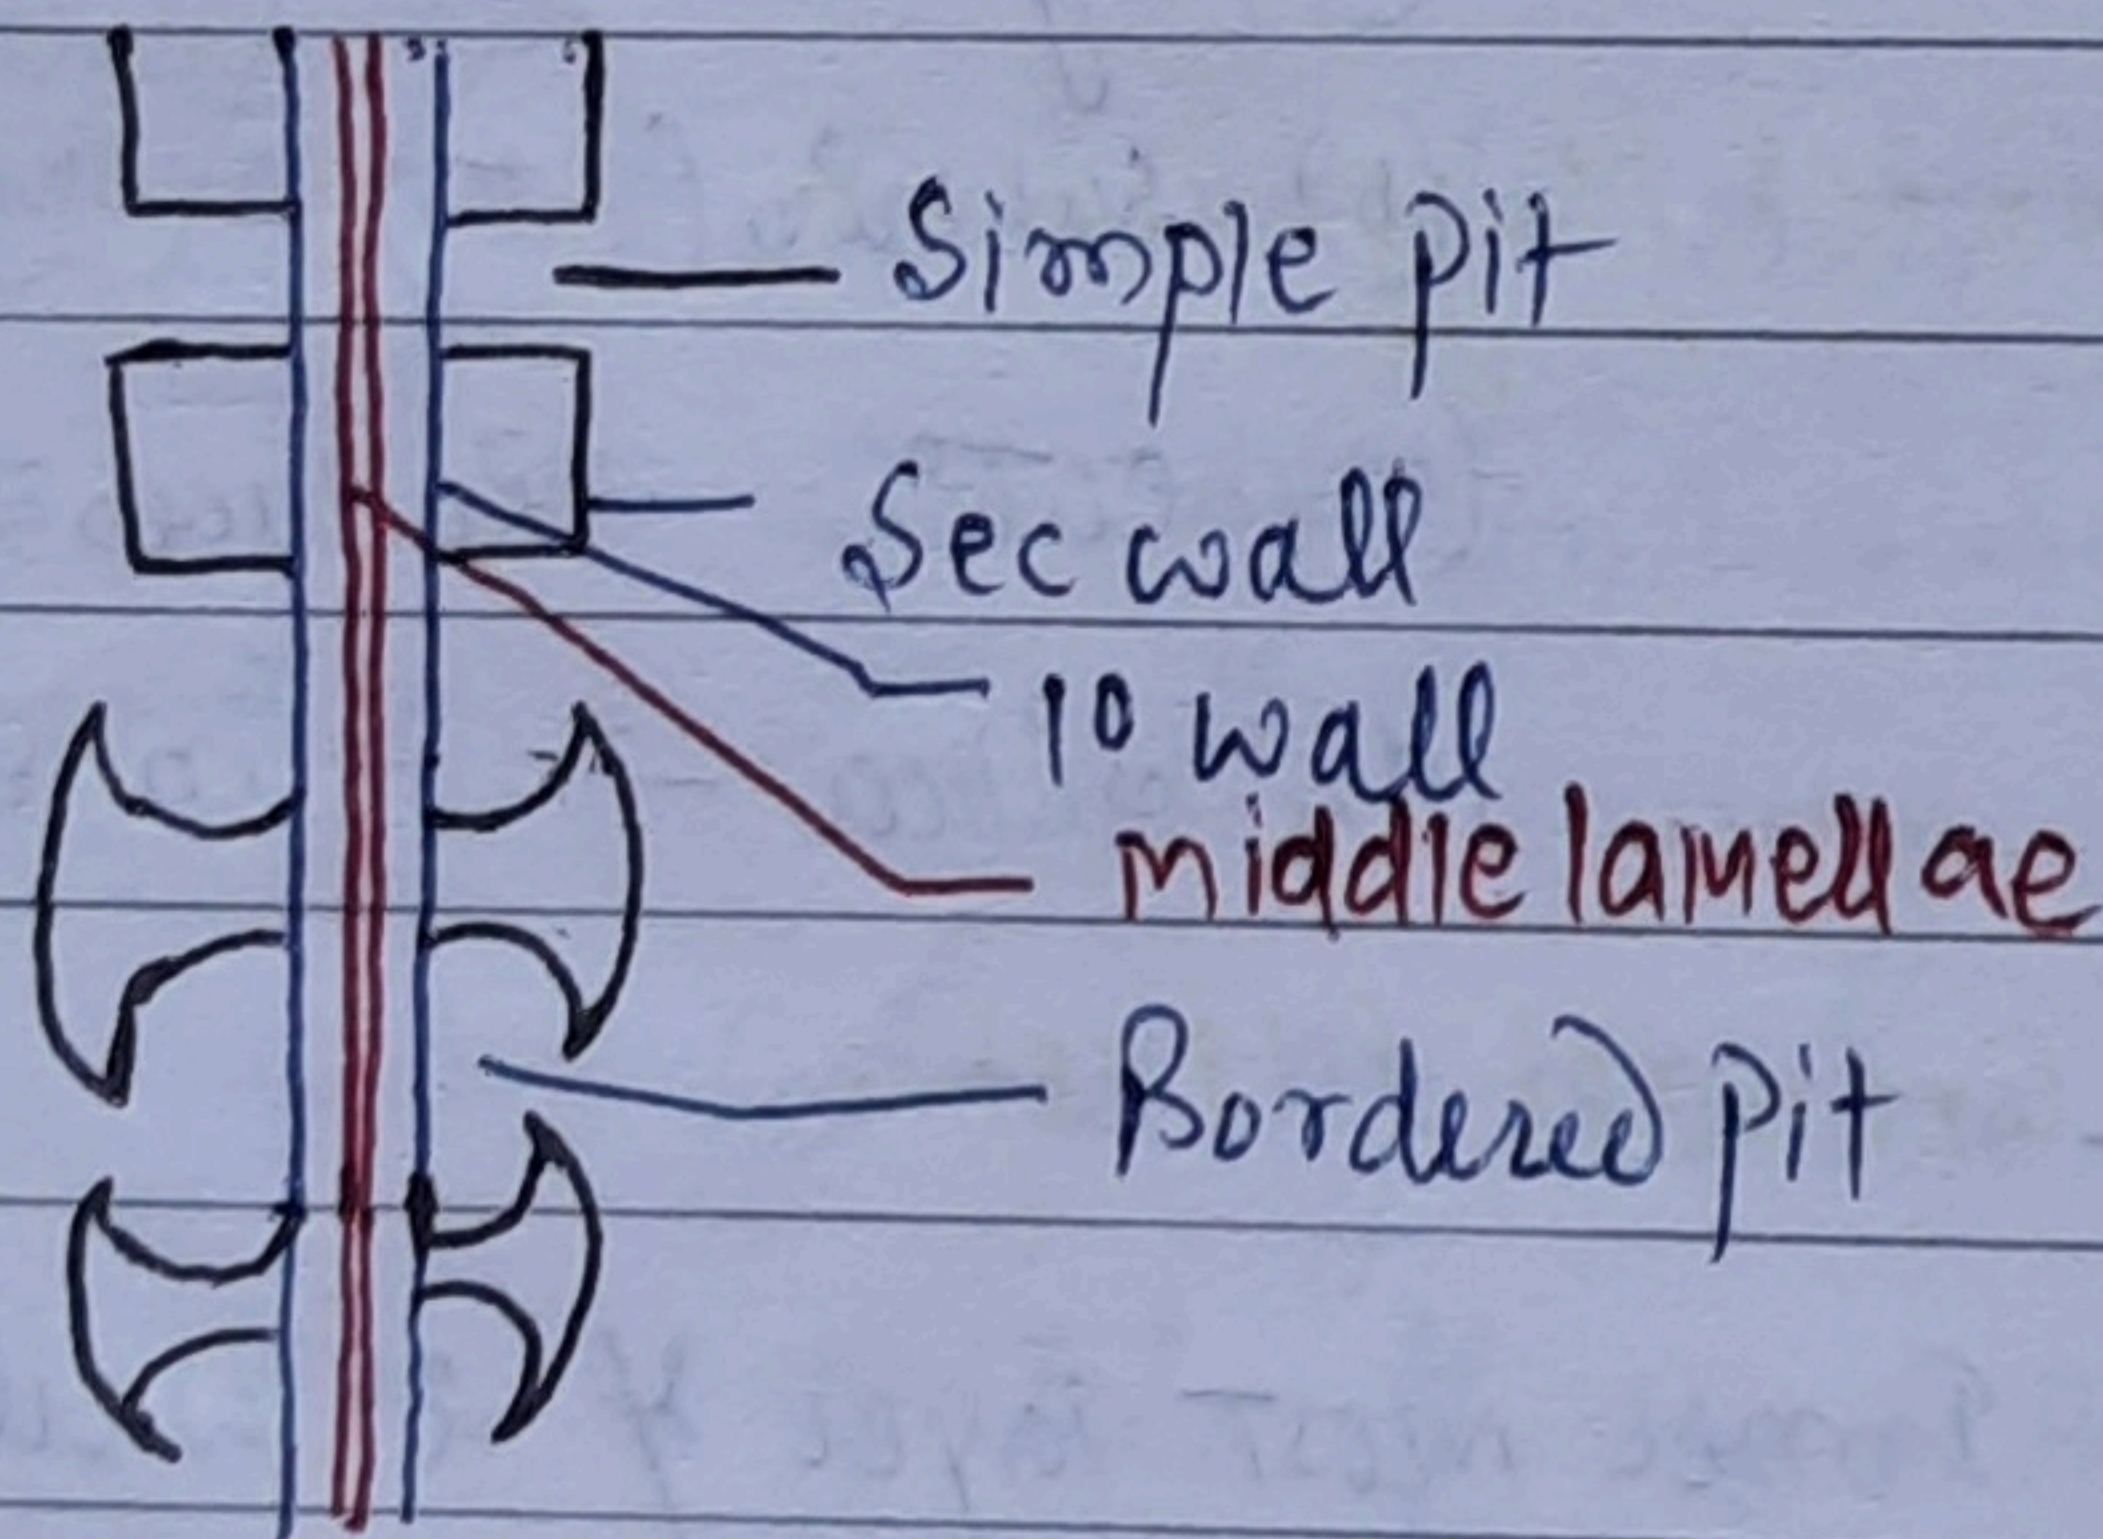 Simple pit
Sec wall
1º wall
middle lamellae
Bordered pit